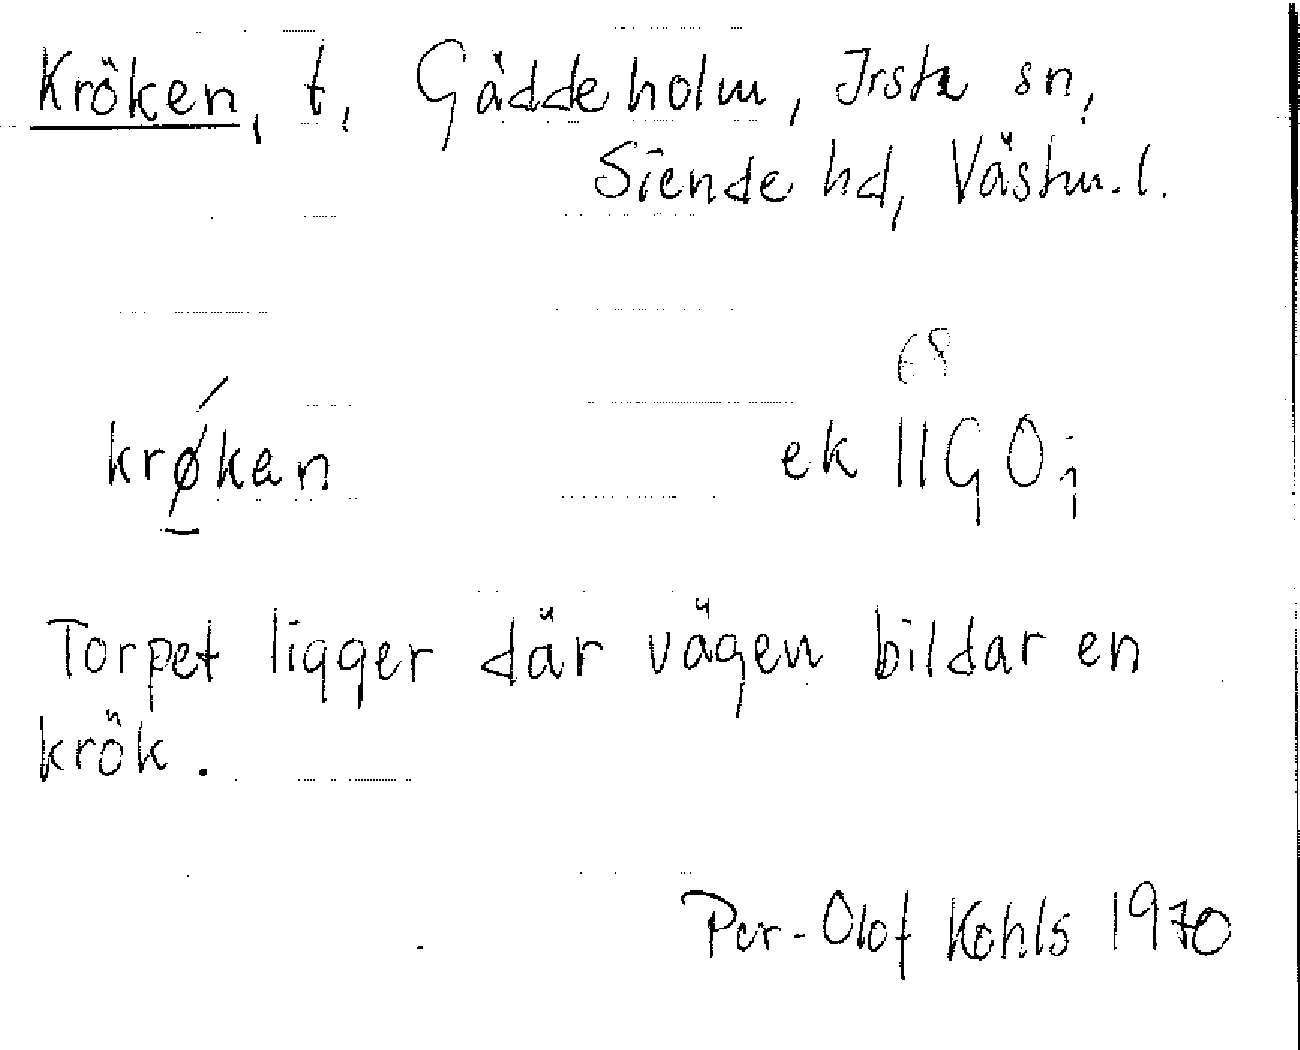 Kröken, t, Gäddeholm, Irsta sn,
Siende hd, Västm.l.
68
krǿ̱ken ek 11G0j
Torpet ligger där vägen bildar en
krök.
Per-Olof Kohls 1970